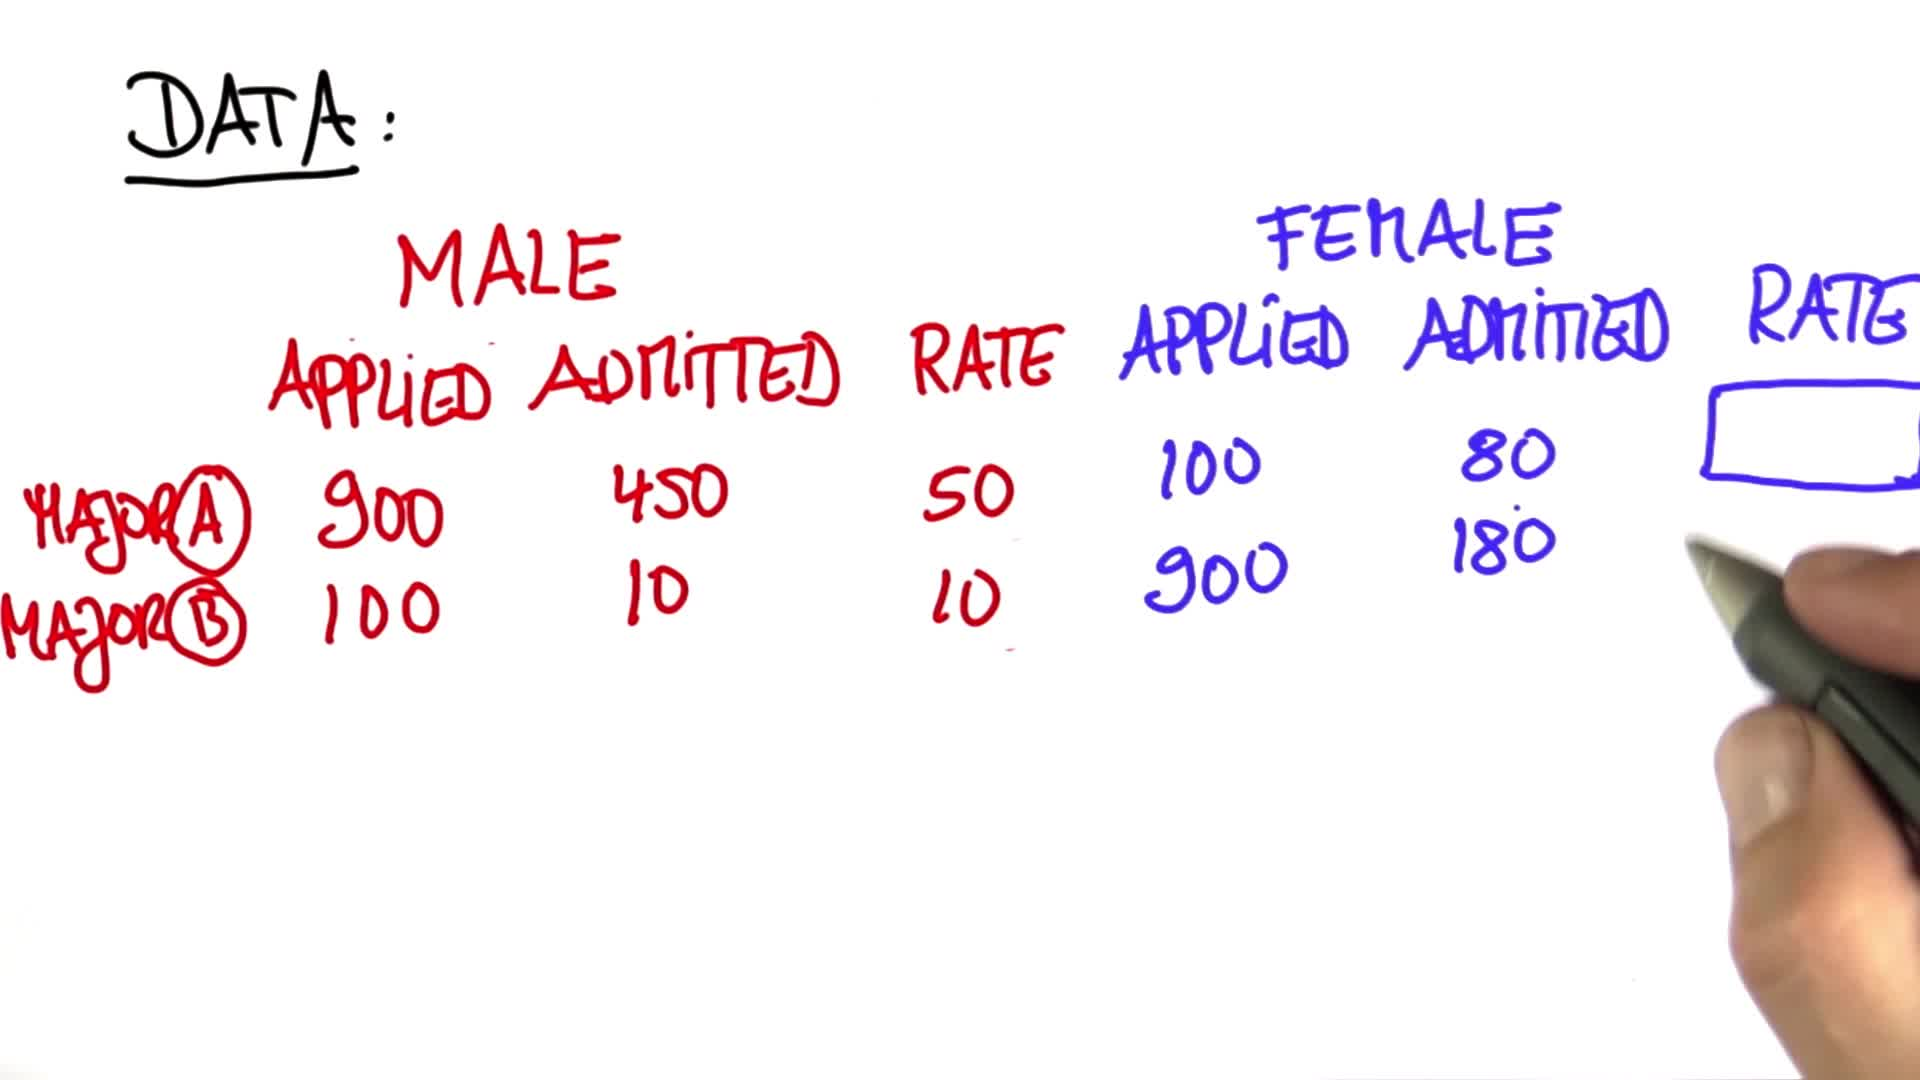 DATA:
MALE FEMALE
APPLIED ADMITTED RATE APPLIED ADMITTED RATE
MAJOR A 900 450 50 100 80
MAJOR B 100 10 10 900 180